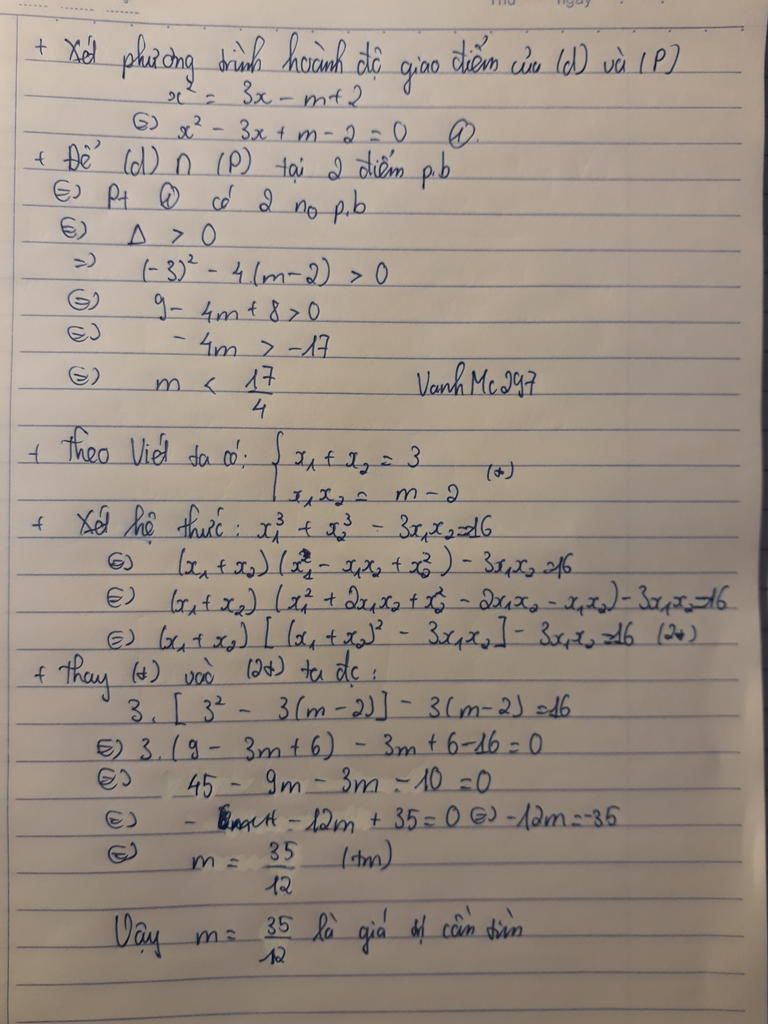 Thứ ngày
+ Xét phương trình hoành độ giao điểm của (d) và (P)
x² = 3x - m + 2
⇔ x² - 3x + m - 2 = 0 ①.
+ Để (d) ∩ (P) tại 2 điểm p.b
⇔ Pt ① có 2 no p.b
⇔ Δ > 0
⇒ (-3)² - 4.(m-2) > 0
⇔ 9 - 4m + 8 > 0
⇔ - 4m > -17
⇔ m < 17/4 VanhMc297
+ Theo Viét ta có: { x₁ + x₂ = 3
x₁x₂ = m - 2 (*)
+ Xét hệ thức: x₁³ + x₂³ - 3x₁x₂ = 16
⇔ (x₁ + x₂) (x₁² - x₁x₂ + x₂²) - 3x₁x₂ = 16
⇔ (x₁ + x₂) (x₁² + 2x₁x₂ + x₂² - 2x₁x₂ - x₁x₂) - 3x₁x₂ = 16
⇔ (x₁ + x₂) [ (x₁ + x₂)² - 3x₁x₂ ] - 3x₁x₂ = 16 (2*)
+ thay (*) vào (2*) ta đc:
3. [ 3² - 3(m-2)] - 3(m-2) = 16
⇔ 3. (9 - 3m + 6) - 3m + 6 - 16 = 0
⇔ 45 - 9m - 3m - 10 = 0
⇔ - 12m + 35 = 0 ⇔ -12m = -35
⇔ m = 35/12 (tm)
Vậy m = 35/12 là giá trị cần tìm